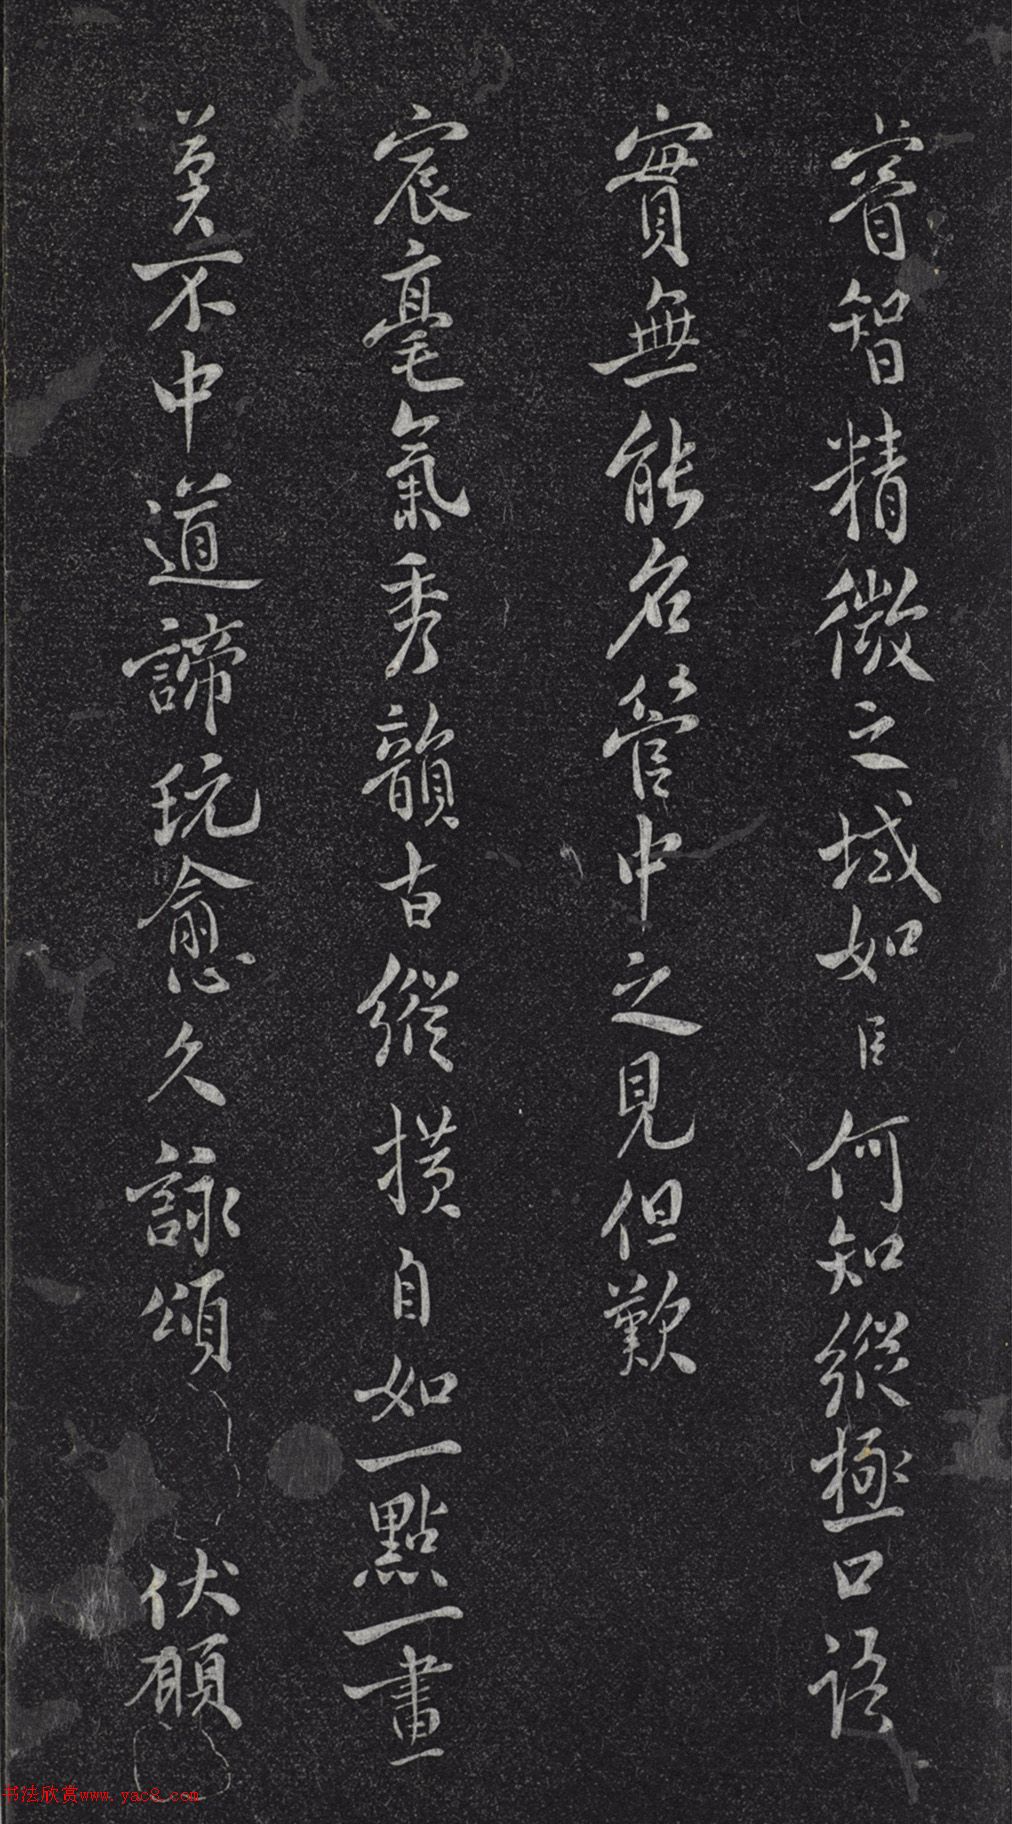 睿智精微之域如臣何知縱極口語
實無能名管中之見但歎
宸毫氣秀韻古縱横自如一點一畫
莫不中道諦玩愈久詠頌 伏願
书法欣赏www.yac8.com